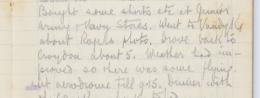 Bought some shirts etc at Junior
Army & Navy Stores. Went to Vandyk
about Raphs photo, drove back to
Croydon about 5. Weather had im-
proved so there was some flying
at aerodrome till 9.15. Dinner with